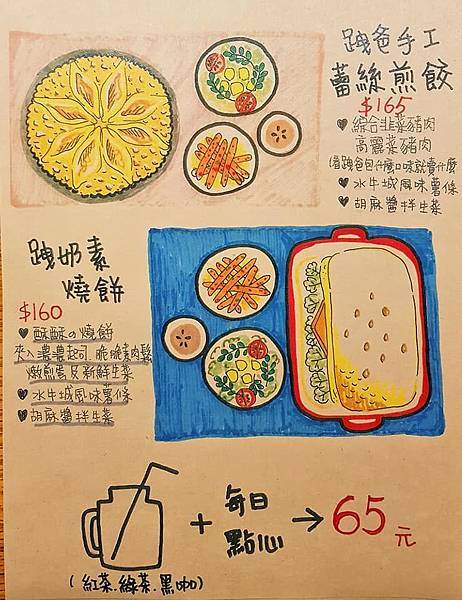 跩爸手工
蕾絲煎餃
$165
綜合韭菜豬肉
高麗菜豬肉
(看跩爸包什麼口味就賣什麼
水牛城風味薯條
胡麻醬拌生菜
跩奶素
燒餅
$160
酥酥の燒餅
夾入濃濃起司.脆脆素肉鬆
嫩煎蛋及新鮮生菜
水牛城風味薯條
胡麻醬拌生菜
+ 每日
點心 → 65元
(紅茶.綠茶.黑咖)